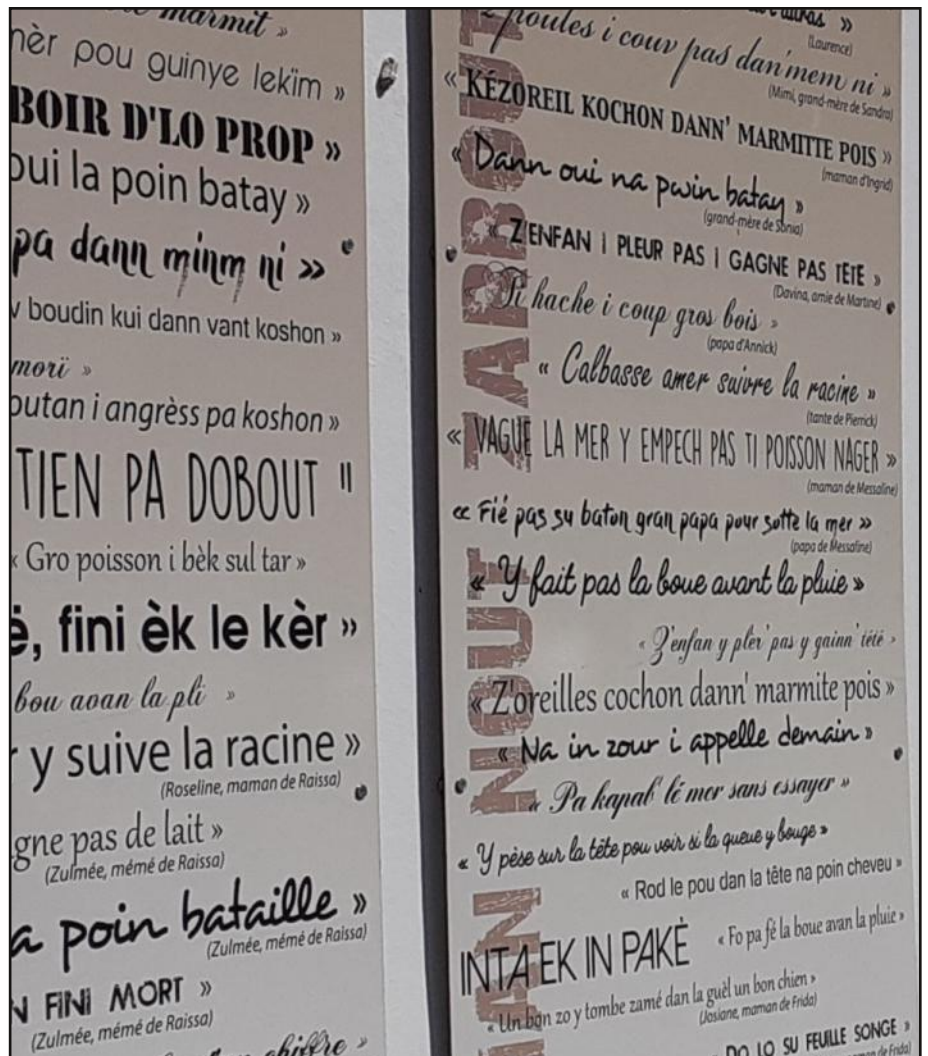 marmit »
nèr pou guinye lekïm »
BOIR D'LO PROP »
oui la poin batay »
pa dann minm ni »
boudin kui dann vant koshon »
morï »
outan i angrèss pa koshon »
TIEN PA DOBOUT "
« Gro poisson i bèk sul tar »
, fini èk le kèr »
bou avan la pli »
y suive la racine »
(Roseline, maman de Raissa)
gne pas de lait »
(Zulmée, mémé de Raissa)
a poin bataille »
(Zulmée, mémé de Raissa)
N FINI MORT »
(Zulmée, mémé de Raissa)
chiffre »
(Laurence)
poules i couv pas dan'mem ni »
(Mimi, grand-mère de Sandra)
« KÉZOREIL KOCHON DANN' MARMITTE POIS »
(maman d'Ingrid)
« Dann oui na pwin batay »
(grand-mère de Sonia)
« Z'ENFAN I PLEUR PAS I GAGNE PAS TÉTÉ »
(Davina, amie de Martine)
Ti hache i coup gros bois »
(papa d'Annick)
« Calbasse amer suivre la racine »
(tante de Pierrick)
« VAGUE LA MER Y EMPECH PAS TI POISSON NAGER »
(maman de Messaline)
« Fié pas su baton gran papa pour sotte la mer »
(papa de Messaline)
« Y fait pas la boue avant la pluie »
« Z'enfan y plèr' pas y gainn' tété »
« Z'oreilles cochon dann' marmite pois »
« Na in zour i appelle demain »
« Pa kapab' lé mor sans essayer »
« Y pèse sur la tête pou voir si la queue y bouge »
« Rod le pou dan la tête na poin cheveu »
INTA EK IN PAKÈ
« Fo pa fè la boue avan la pluie »
« Un bon zo y tombe zamé dan la guèl un bon chien »
(Josiane, maman de Frida)
DO LO SU FEUILLE SONGE »
de Frida)
ZARBOUT
NOUT